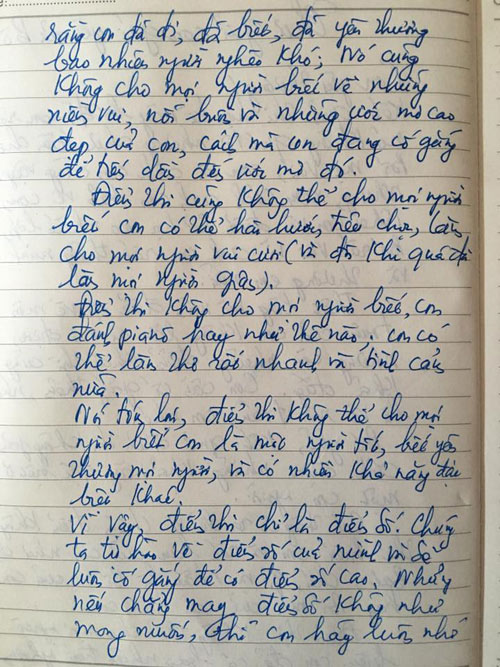 rằng con đã đi, đã biết, đã yêu thương
bao nhiêu người nghèo khó; Nó cũng
không cho mọi người biết về những
niềm vui, nỗi buồn và những ước mơ cao
đẹp của con, cách mà con đang cố gắng
để tiến dần đến ước mơ đó.
Điểm thi cũng không thể cho mọi người
biết con có thể hài hước, tếu chọc, làm
cho mọi người vui cười (và đôi khi quá đà
làm mọi người giận).
Điểm thi không cho mọi người biết, con
đánh piano hay như thế nào. Con có
thể làm thơ rất nhanh và tình cảm
nữa.
Nói tóm lại, điểm thi không thể cho mọi
người biết con là một người tốt, biết yêu
thương mọi người, và có nhiều khả năng đặc
biệt khác.
Vì vậy, điểm thi chỉ là điểm số. Chúng
ta tự hào về điểm số của mình và sẽ
luôn cố gắng để có điểm số cao. Nhưng
nếu chẳng may điểm số không như
mong muốn, thì con hãy luôn nhớ